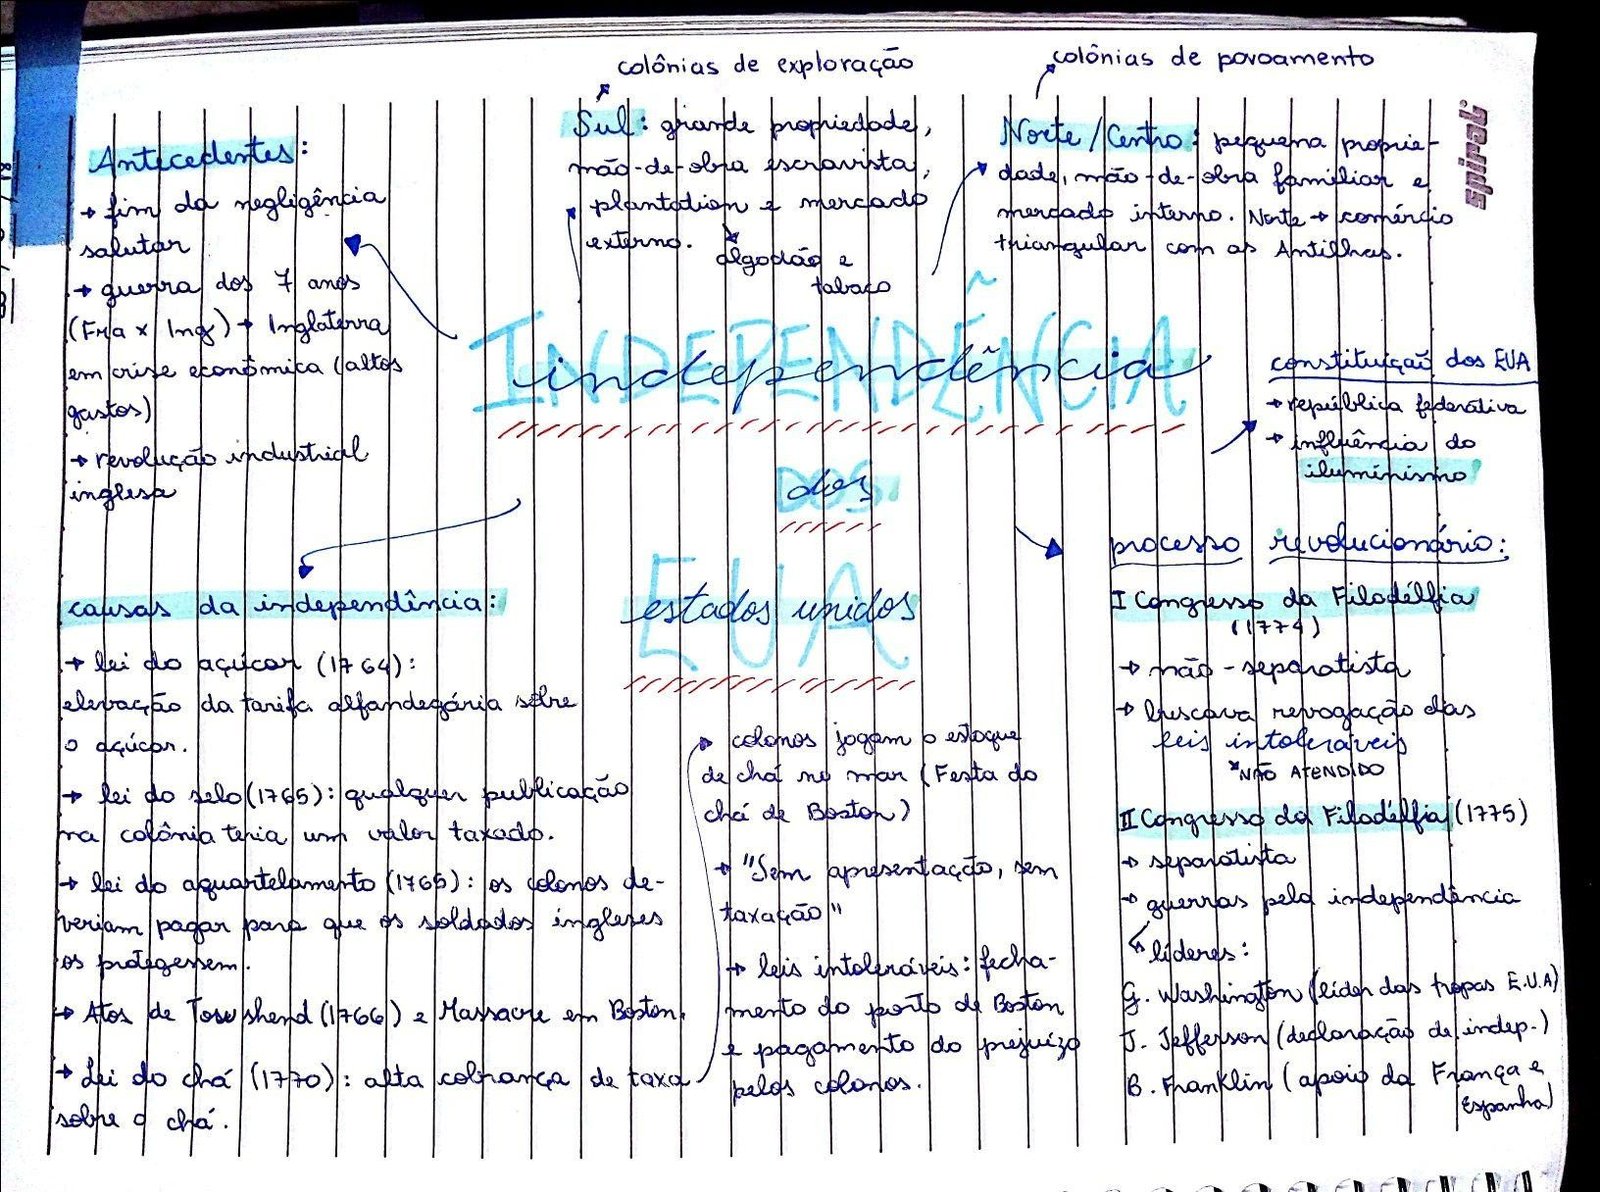 colônias de exploração
Sul: grande propriedade,
mão-de-obra escravista,
plantation e mercado
externo.
algodão e
tabaco
colônias de povoamento
Norte/Centro: pequena proprie-
dade, mão-de-obra familiar e
mercado interno. Norte → comércio
triangular com as Antilhas.
spiral
Antecedentes:
→ fim da negligência
salutar
→ guerra dos 7 anos
(Fra x Ing) → Inglaterra
em crise econômica (altos
gastos)
→ revolução industrial
inglesa
INDEPENDÊNCIA
independência
DOS
dos
EUA
estados unidos
constituição dos EUA
→ república federativa
→ influência do
iluminismo
causas da independência:
→ lei do açúcar (1764):
elevação da tarifa alfandegária sobre
o açúcar.
→ lei do selo (1765): qualquer publicação
na colônia teria um valor taxado.
→ lei do aquartelamento (1765): os colonos de-
veriam pagar para que os soldados ingleses
os protegessem.
→ Atos de Towshend (1766) e Massacre em Boston.
→ Lei do chá (1770): alta cobrança de taxa
sobre o chá.
→ colonos jogam o estoque
de chá no mar (Festa do
chá de Boston)
→ "Sem apresentação, sem
taxação"
→ leis intoleráveis: fecha-
mento do porto de Boston
e pagamento do prejuízo
pelos colonos.
processo revolucionário:
I Congresso da Filadélfia
(1774)
→ não-separatista
→ buscava revogação das
leis intoleráveis
*NÃO ATENDIDO
II Congresso da Filadélfia (1775)
→ separatista
→ guerras pela independência
líderes:
G. Washington (líder das tropas E.U.A)
J. Jefferson (declaração de indep.)
B. Franklin (apoio da França e
Espanha)